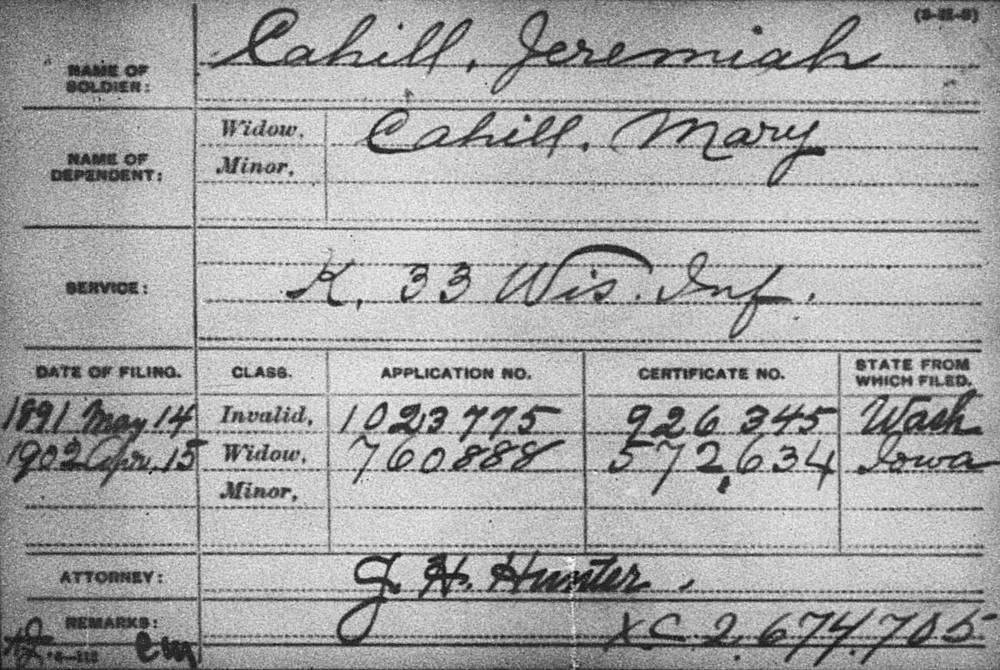 (3-III-3)
Cahill, Jeremiah
NAME OF
SOLDIER:
Widow, Cahill, Mary
NAME OF
DEPENDENT:
Minor,
SERVICE: K, 33 Wis. Inf.
DATE OF FILING. CLASS. APPLICATION NO. CERTIFICATE NO. STATE FROM
WHICH FILED.
1891 May 14 Invalid, 1023775 926345 Wash
1902 Apr. 15 Widow, 760888 572,634 Iowa
Minor,
ATTORNEY: J. H. Hunter.
REMARKS: XC 2,674,705